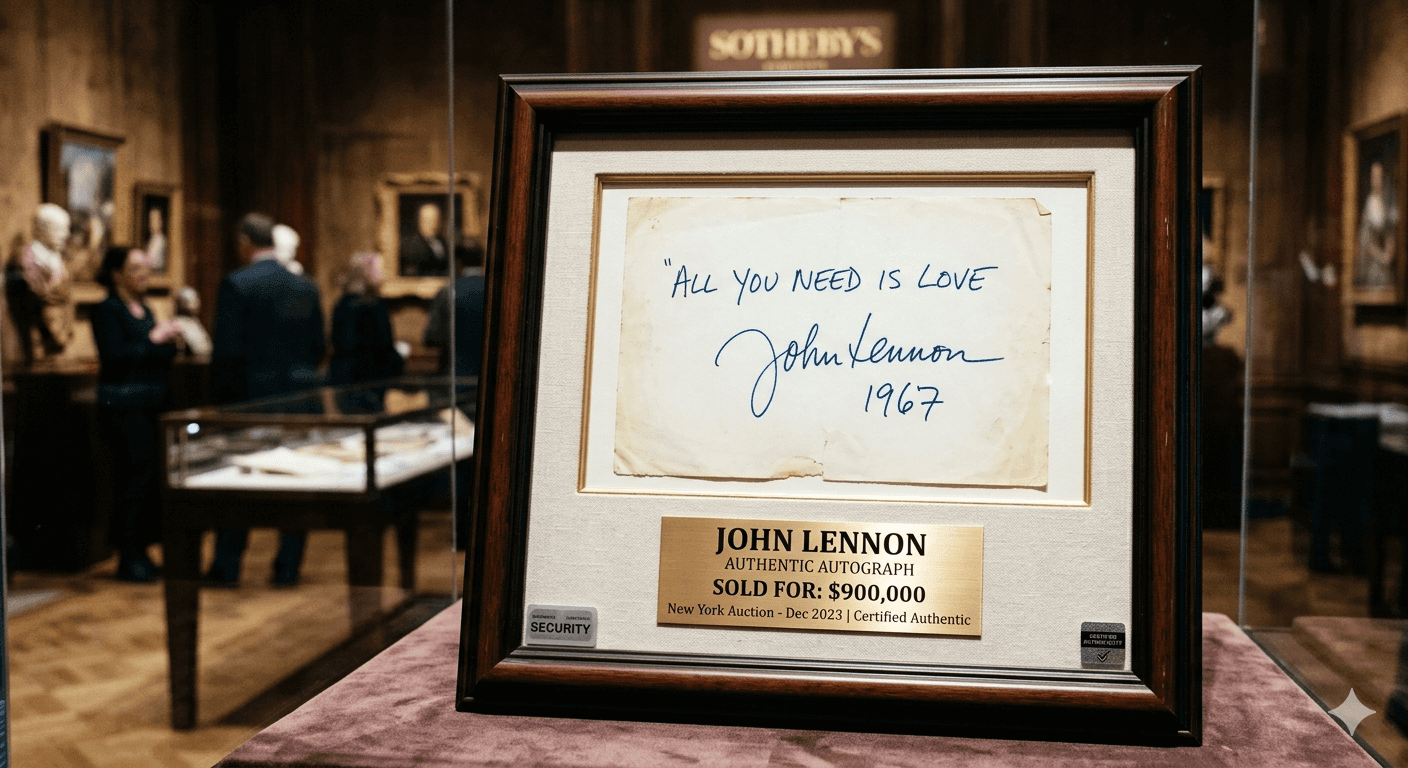 SOTHEBY'S
"ALL YOU NEED IS LOVE
John Lennon
1967
JOHN LENNON
AUTHENTIC AUTOGRAPH
SOLD FOR: $900,000
New York Auction - Dec 2023 | Certified Authentic
SECURITY